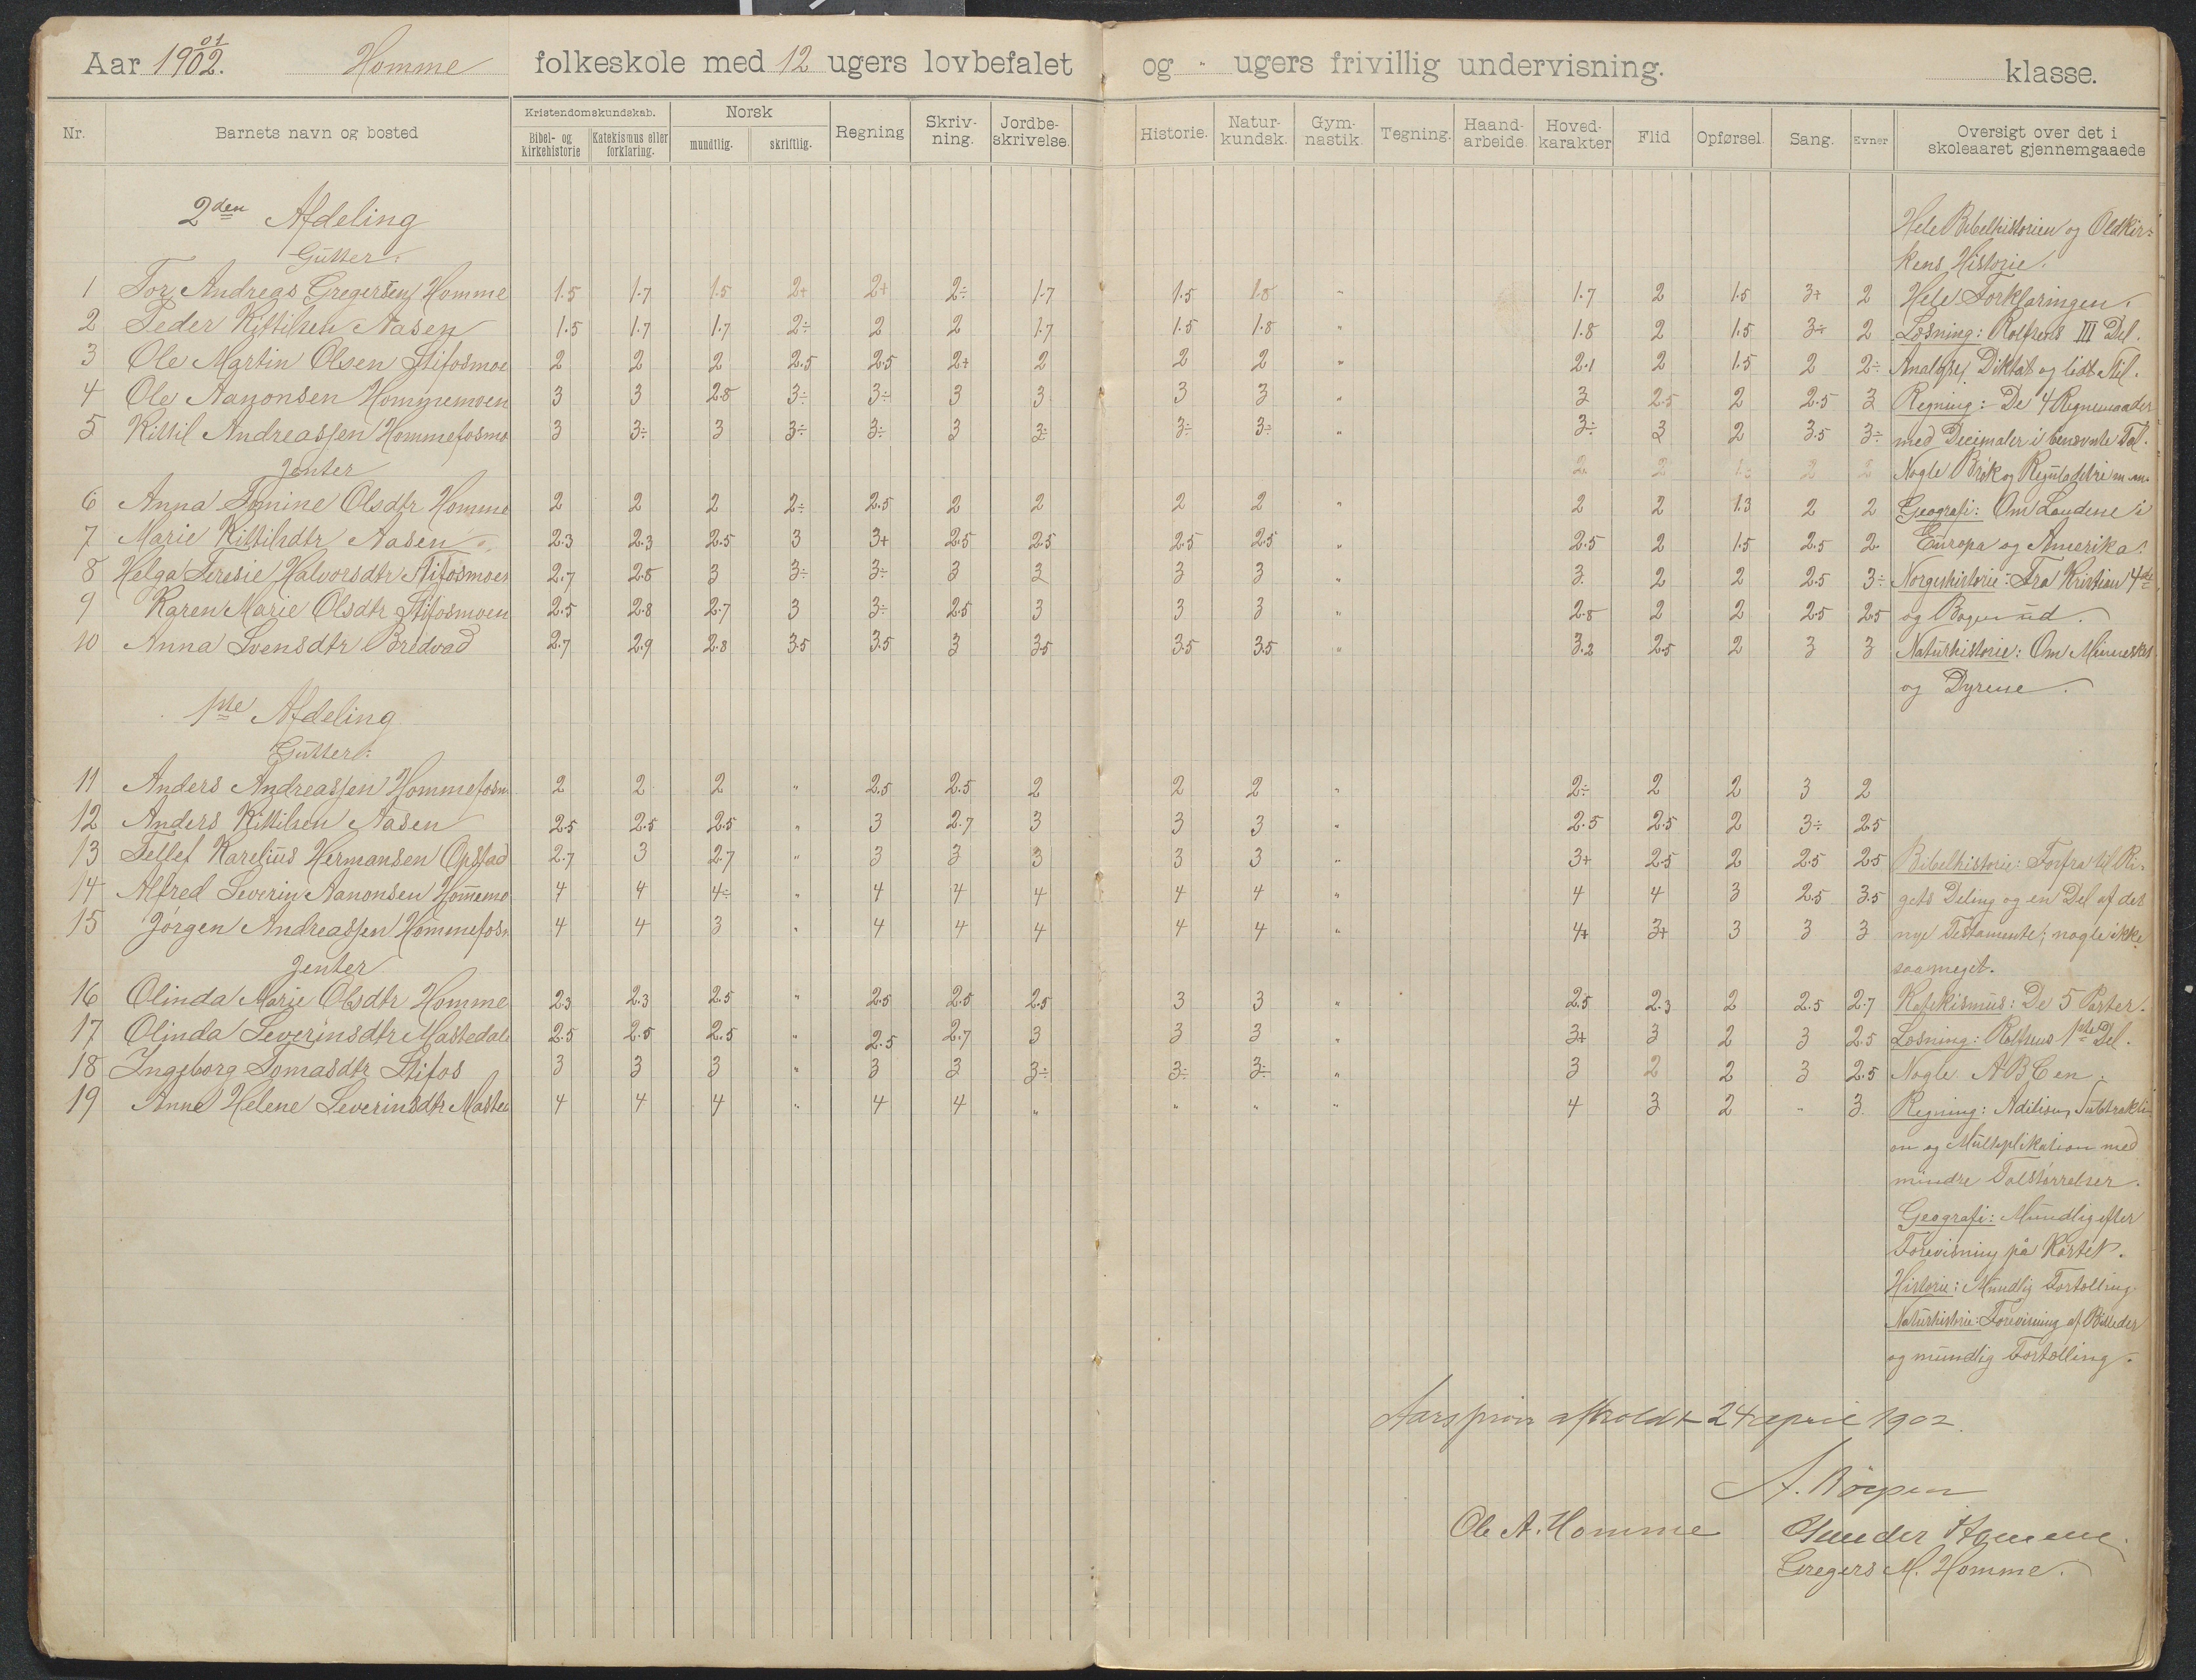 Aar 1902. 01 Homme folkeskole med 12 ugers lovbefalet og " ugers frivillig undervisning. klasse.
Nr. Barnets navn og bosted Kristendomskundskab. Bibel- og Kirkehistorie Katekismus eller forklaring. Norsk mundtlig. skriftlig. Regning Skriv-ning. Jordbe-skrivelse. Historie. Natur-kundsk. Gym-nastik. Tegning. Haand-arbeide. Hoved-karakter Flid Opførsel. Sang. Evner Oversigt over det i skoleaaret gjennemgaaede
2den Afdeling
Gutter:
1 Tor Andreas Gregersen Homme 1.5 1.7 1.5 2+ 2+ 2÷ 1.7 1.5 1.8 " 1.7 2 1.5 3+ 2
2 Peder Kittilsen Aasen 1.5 1.7 1.7 2÷ 2 2 1.7 1.5 1.8 " 1.8 2 1.5 3÷ 2
3 Ole Martin Olsen Stifosmoe 2 2 2 2.5 2.5 2+ 2 2 2 " 2.1 2 1.5 2 2÷
4 Ole Aanonsen Hommemoen 3 3 2.8 3÷ 3÷ 3 3 3 3 " 3 2.5 2 2.5 3
5 Kittil Andreassen Hommefosmo 3 3÷ 3 3÷ 3÷ 3 3÷ 3÷ 3÷ " 3÷ 3 2 3.5 3÷
Jenter
6 Anna Tomine Olsdtr Homme 2 2 2 2÷ 2.5 2 2 2 2 " 2 2 1.3 2 2
7 Marie Kittilsdtr Aasen 2.3 2.3 2.5 3 3+ 2.5 2.5 2.5 2.5 " 2.5 2 1.5 2.5 2
8 Helga Teresie Halvorsdtr Stifosmoen 2.7 2.8 3 3÷ 3÷ 3 3 3 3 " 3 2 2 2.5 3÷
9 Karen Marie Olsdtr Stifosmoen 2.5 2.8 2.7 3 3÷ 2.5 3 3 3 " 2.8 2 2 2.5 2.5
10 Anna Svensdtr Bredvad 2.7 2.9 2.8 3.5 3.5 3 3.5 3.5 3.5 " 3.2 2.5 2 3 3
1ste Afdeling
Gutter:
11 Anders Andreassen Hommefosm 2 2 2 " 2.5 2.5 2 2 2 " 2÷ 2 2 3 2
12 Anders Kittilsen Aasen 2.5 2.5 2.5 " 3 2.7 3 3 3 " 2.5 2.5 2 3÷ 2.5
13 Tellef Karelius Hermansen Opstad 2.7 3 2.7 " 3 3 3 3 3 " 3+ 2.5 2 2.5 2.5
14 Alfred Severin Aanonsen Hommemo 4 4 4÷ " 4 4 4 4 4 " 4 4 3 2.5 3.5
15 Jørgen Andreassen Hommefosm 4 4 3 " 4 4 4 4 4 " 4+ 3+ 3 3 3
Jenter
16 Olinda Marie Olsdtr Homme 2.3 2.3 2.5 " 2.5 2.5 2.5 3 3 " 2.5 2.3 2 2.5 2.7
17 Olinda Severinsdtr Mastedale 2.5 2.5 2.5 " 2.5 2.7 3 3 3 " 3+ 3 2 3 2.5
18 Ingeborg Tomasdtr Stifos 3 3 3 " 3 3 3÷ 3÷ 3÷ " 3 2 2 3 2.5
19 Anne Helene Severinsdtr Masted 4 4 4 " 4 4 " " " " 4 3 2 " 3
Hele Bibelhistorien og Oldkir-
kens Historie.
Hele Forklaringen.
Læsning: Rolfsens III Del.
Analyse, Diktat og lidt Stil.
Regning: De 4 Regnemaader
med Decimaler i benævnte Tal.
Nogle Brøk og Reguladetri m.m.
Geografi: Om Landene i
Europa og Amerika.
Norgeshistorie: Fra Kristian 4de
og Bogen ud.
Naturhistorie: Om Mennesket
og Dyrene.
Bibelhistorie: Forfra til Ri-
gets Deling og en Del af det
nye Testamente, nogle ikke
saa meget.
Katekismus: De 5 Parter.
Læsning: Rolfsens 1ste Del.
Nogle ABCen.
Regning: Adition, Subtrakti-
on og Multiplikation med
mindre Talstørrelser.
Geografi: Mundlig efter
Forevisning på Kartet.
Historie: Mundlig Fortælling.
Naturhistorie: Forevisning af Billeder
og mundlig Fortælling.
Aarsprøve afholdt 24 april 1902.
Ole A. Homme
Gregers M. Homme.